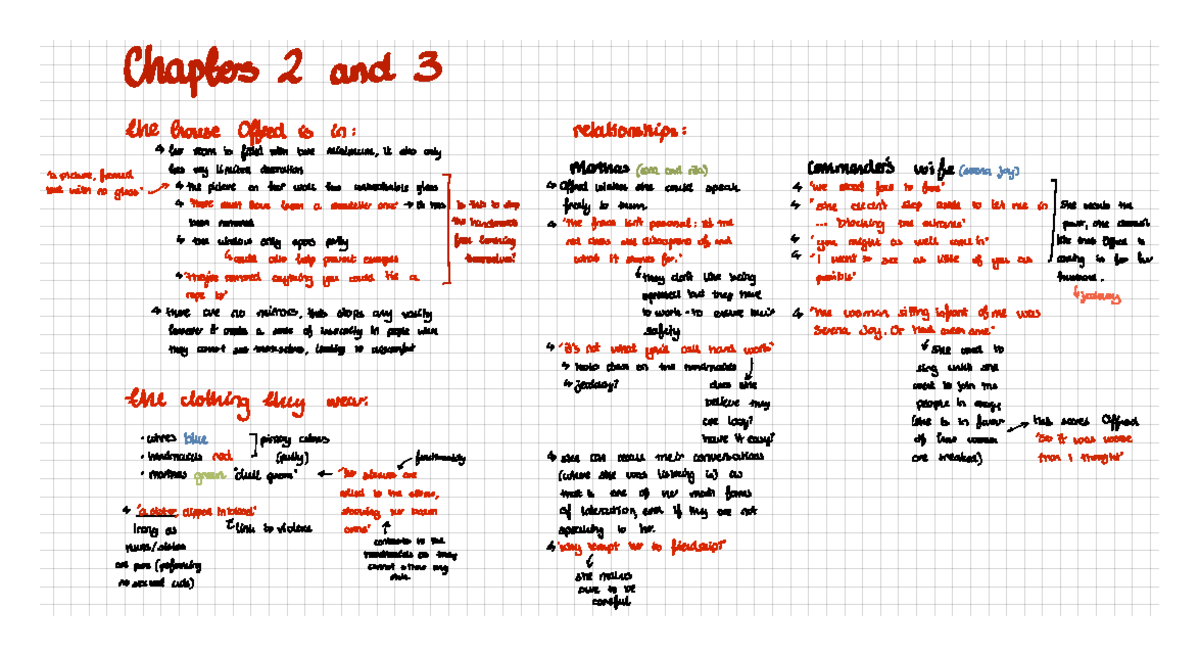 Chapters 2 and 3
the house Offred is in:
↳ her room is filled with bare minimum, it also only
has very limited decoration
"a picture, framed
but with no glass"
↳ the picture on her walls has unbreakable glass
↳ "there must have been a chandelier once" → it has
been removed
↳ the window only opens partly
↳ could also help prevent escapes
↳ "they've removed anything you could tie a
rope to"
↳ this to stop
the handmaids
from harming
themselves!
↳ there are no mirrors, this stops any vanity
however it creates a sense of insecurity in people when
they cannot see themselves, leading to discomfort
the clothing they wear:
• wives blue
• handmaids red
• marthas green "dull green"
primary colours
(purity)
"her sleeves are
rolled to the elbow,
showing her brown
arms"
functionality
contrasts to the
handmaids as they
cannot show any
skin
↳ "a sister, dipped in blood"
link to violence
irony as
nuns/sisters
are pure (performing
no sexual acts)
relationships:
Marthas (cora and rita)
↳ Offred wishes she could speak
freely to them
↳ "the frown isn't personal: it's the
red dress she disapproves of and
what it stands for."
they don't like being
oppressed but they have
to work - to ensure their
safety
↳ "it's not what you'd call hard work"
↳ looks down on the handmaids
↳ jealousy?
does she
believe they
are lazy?
have it easy?
↳ she can recall their conversations
(where she was listening in) as
that is one of her main forms
of interaction, even if they are not
speaking to her.
↳ "why tempt her to friendship?"
she makes
sure to be
careful
Commander's wife (serena joy)
↳ "we stood face to face"
↳ "she didn't step aside to let me in
... blocking the entrance"
↳ "you might as well come in"
↳ "I want to see as little of you as
possible"
She wants the
power, she doesn't
like that Offred is
coming in for her
husband.
↳ jealousy
↳ "The woman sitting infront of me was
Serena Joy. Or had been once"
she used to
sing until she
went to join the
people in charge
(she is in favour
of how women
are treated)
this scares Offred
"So it was worse
than I thought"